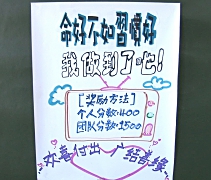 命好不如習慣好
我做到了吧!
[奖励方法]
个人分数:400
团队分数:1500
欢喜付出 广结善缘